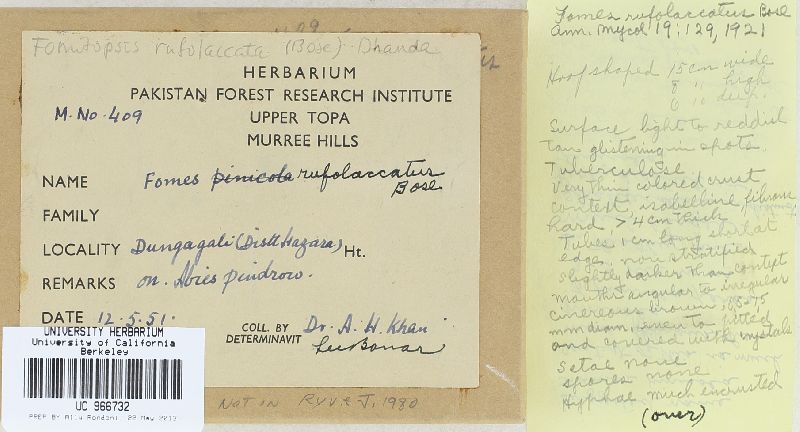 Fomitopsis rufolaccata (Bose) Dhanda
HERBARIUM
PAKISTAN FOREST RESEARCH INSTITUTE
M. No. 409 UPPER TOPA
MURREE HILLS
NAME Fomes pinicola rufolaccatus
Bose.
FAMILY
LOCALITY Dungagali (Distt Hazara) Ht.
REMARKS on. Abies pindrow.
DATE 12.5.51.
COLL. BY Dr. A. H. Khan
DETERMINAVIT Lee Bonar
UNIVERSITY HERBARIUM
University of California
Berkeley
UC 966732
Not in Ryv & J, 1980
Fomes rufolaccatus Bose
Ann. Mycol 19:129, 1921
Hoof shaped 15 cm wide
8 " high
6 " deep.
Surface light to reddish
tan glistening in spots.
Tuberculose
Very thin colored crust
context isabelline, fibrous
hard, > 4 cm thick
Tubes 1 cm long at
edge, non stratified
slightly darker than context
mouths angular to irregular
cinereous brown
mm diam, even to pitted
and covered with crystals
Setae none
spores none
Hyphae much encrusted
(over)